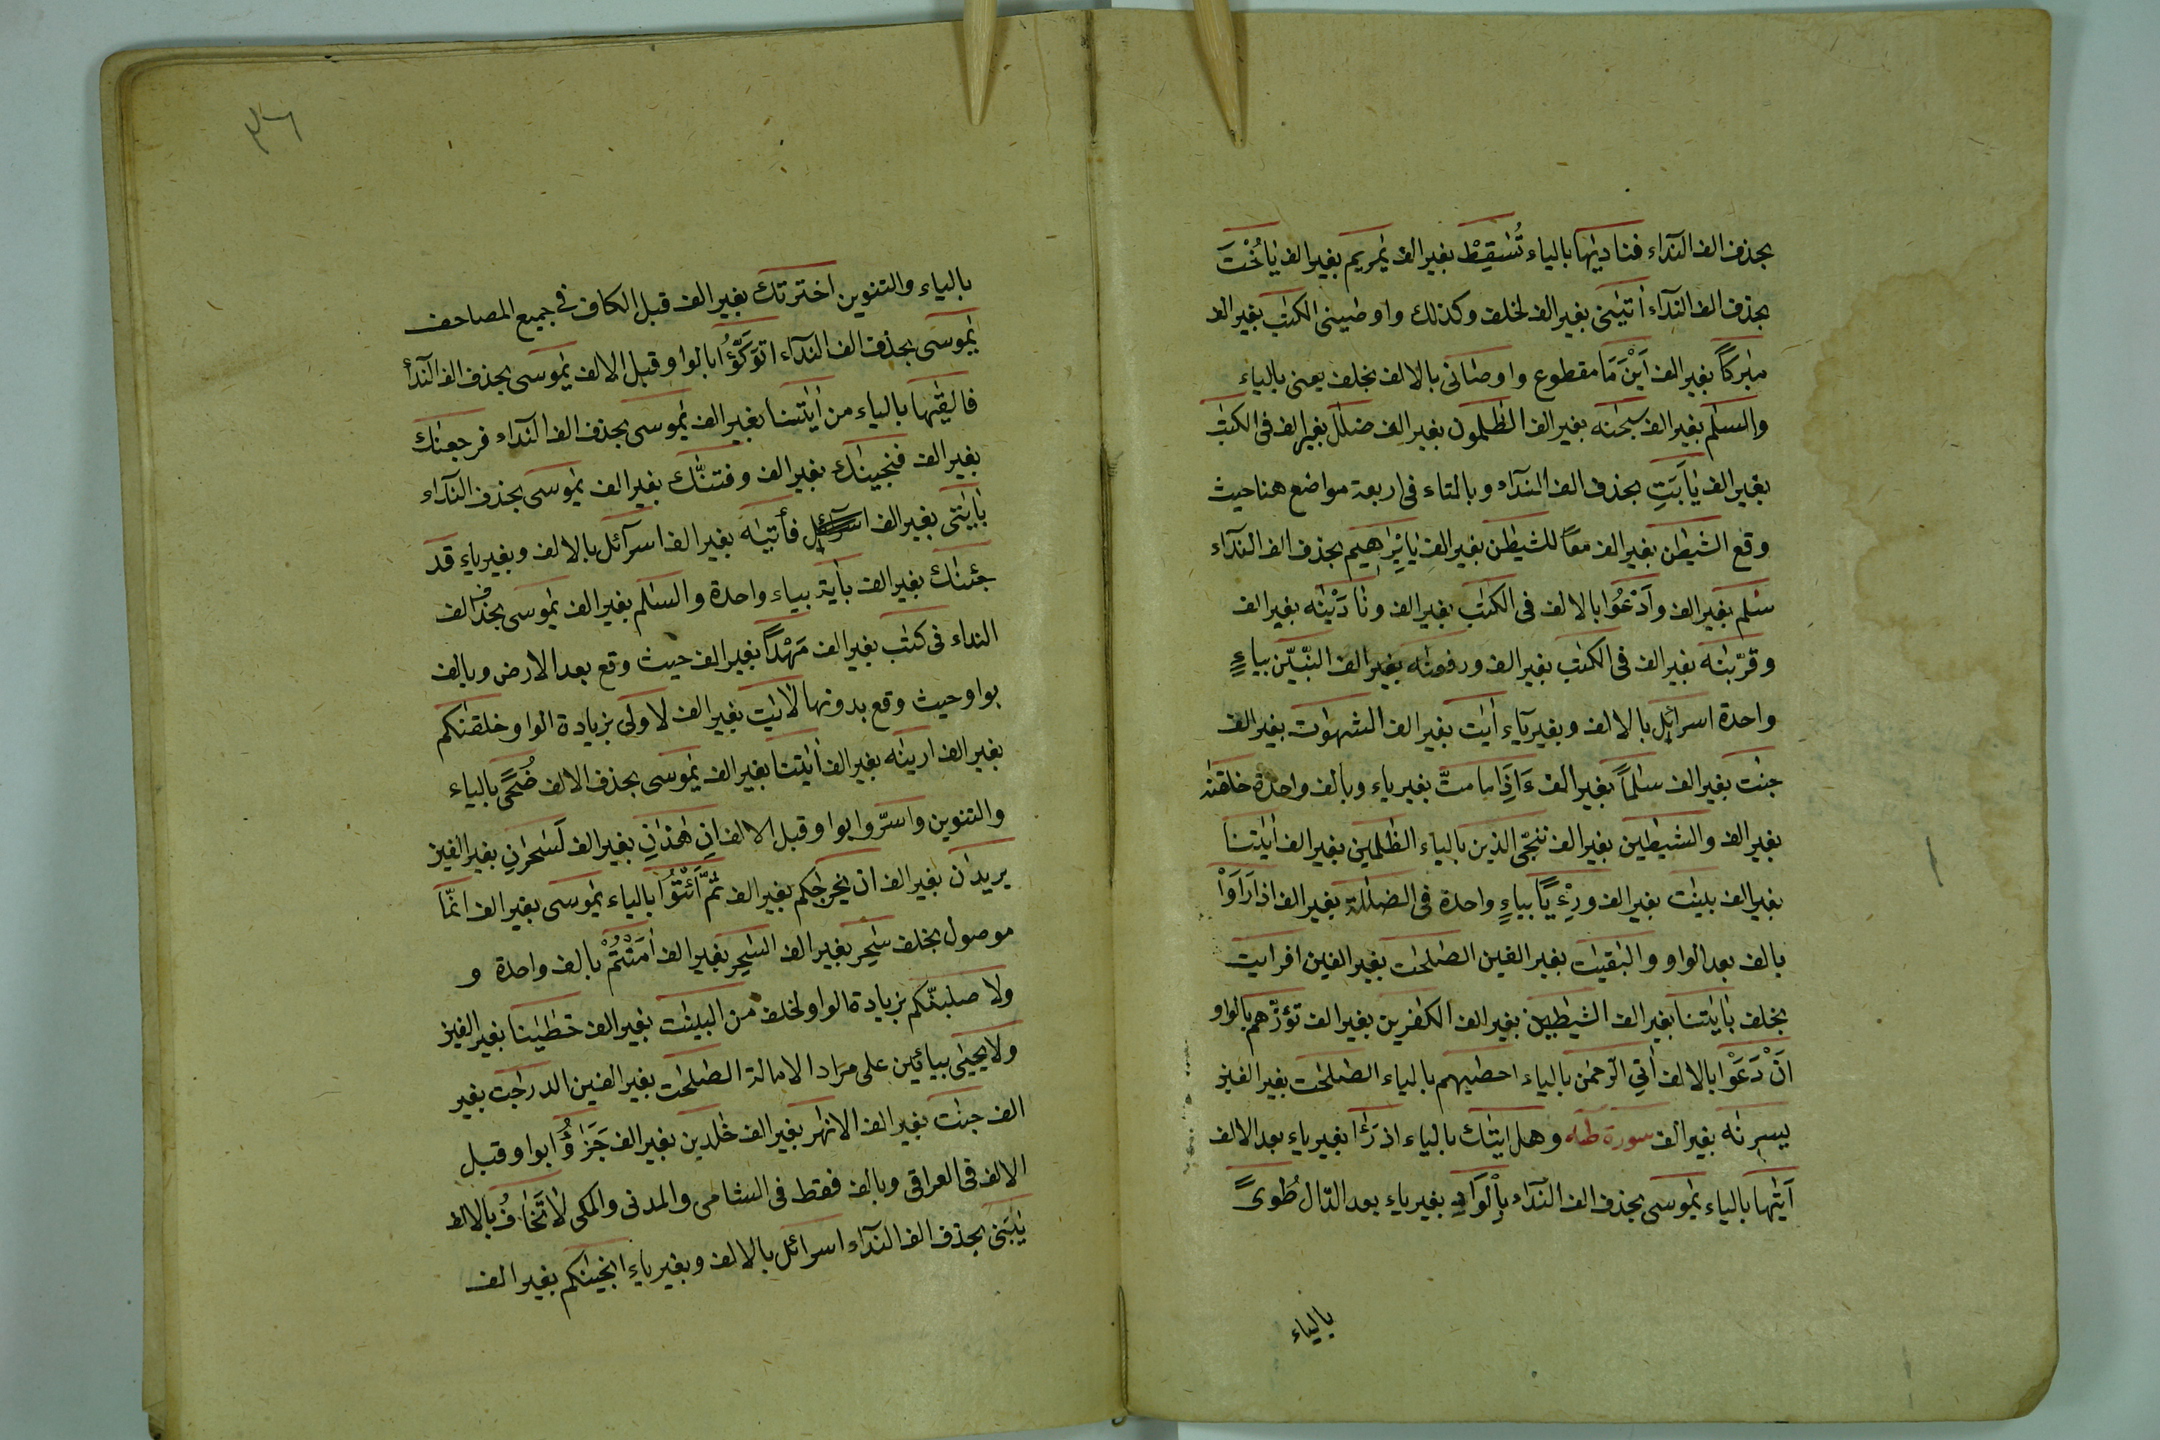 بحذف الف النداء فناديٰها بالياء تُسٰقِطْ بغير الف يٰمريم بغير الف يٰاُخْتَ
بحذف الف الندآء اٰتٰيني بغير الف لخلف وكذلك واوصٰيني الكتٰب بغير الف
مبٰركاً بغير الف اَيْنَ مَا مقطوع واوصاني بالالف بخلف يعني بالياء
والسلٰم بغير الف سبحٰنه بغير الف الظٰلمون بغير الف ضلٰل بغير الف في الكتٰب
بغير الف يٰاَبَتِ بحذف الف الندآء وبالتاء في اربعة مواضع هنا حيث
وقع الشيطٰن بغير الف معاً للشيطٰن بغير الف يٰاِبْرٰهيم بحذف الف الندآء
سلٰم بغير الف وَاَدْعُوا بالالف في الكتٰب بغير الف ونٰادَيْنٰه بغير الف
وقرّبنٰه بغير الف في الكتٰب بغير الف ورفعنٰه بغير الف النبيّن بياءٍ
واحدة اسرائيل بالالف وبغير ياء اٰيٰت بغير الف الشهوٰت بغير الف
جنٰت بغير الف سلٰماً بغير الف ءَاِذَا ما متّ بغير ياء وبالف واحدة خلقنٰه
بغير الف والشيٰطين بغير الف ننجّي الذين بالياء الظٰلمين بغير الف اٰيٰتنا
بغير الف بينٰت بغير الف ورِءْيًا بياءٍ واحدة في الضلٰلة بغير الف اذا رَاَوْا
بالف بعد الواو والبٰقيٰت بغير الفين الصٰلحٰت بغير الفين افرايت
بخلف باٰيٰتنا بغير الف الشيٰطين بغير الف الكٰفرين بغير الف تؤزّهم بالواو
اَنْ دَعَوْا بالالف اٰتي الرّحمٰن بالياء احصٰيهم بالياء الصٰلحٰت بغير الفين
يسرنٰه بغير الف سورة طه وهل اتٰيك بالياء اذ رَءَا بغير ياء بعد الالف
اَتٰيها بالياء يٰموسى بحذف الف الندآء بِالْوَادِ بغير ياء بعد الدّال طُوىً
بالياء
٣٦
بالياء والتنوين اخترتك بغير الف قبل الكاف في جميع المصاحف
يٰموسى بحذف الف الندآء اتوَكَّؤُا بالواو وقبل الالف يٰموسى بحذف الف الندآء
فالقٰيها بالياء من اٰيٰتنا بغير الف يٰموسى بحذف الف الندآء فرجعنٰك
بغير الف فنجينٰك بغير الف وفتنّٰك بغير الف يٰموسى بحذف الندآء
باٰيٰتي بغير الف فأتيٰه بغير الف اسرآئل بالالف وبغير ياءٍ قد
جئنٰك بغير الف باٰية بياء واحدة والسلٰم بغير الف يٰموسى بحذف الف
النداء في كتٰب بغير الف مَهْدًا بغير الف حيث وقع بعد الارض وبالف
بواو حيث وقع بدونها لاٰيٰت بغير الف لاولي بزيادة الواو خلقنٰكم
بغير الف ارينٰه بغير الف اٰيٰتنا بغير الف يٰموسى بحذف الالف ضُحًى بالياء
والتنوين واسرّوا بواو وقبل الالف اِنِ هٰذٰنِ بغير الف لَسٰحرٰنِ بغير الفين
يريدٰن بغير الف ان يخرجٰكم بغير الف ثُمَّ ائْتُوا بالياء يٰموسى بغير الف انّما
موصول بخلف سٰحِر بغير الف السٰحِر بغير الف اٰمَنْتُمْ بالف واحدة و
ولاصلبنّكم بزيادة الواو لخلف من البينٰت بغير الف خطٰيٰنا بغير الفين
ولا يحيٰى بيائين على مراد الامالة الصٰلحٰت بغير الفين الدرجٰت بغير
الف جنٰت بغير الف الانهٰر بغير الف خٰلدين بغير الف جَزٰؤُا بواو وقبل
الالف في العراقي وبالف فقط في الشامي والمدني والمكي لا تَخٰافُ بالالف
يٰبَني بحذف الف الندآء اسرائل بالالف وبغير ياءٍ انجينٰكم بغير الف